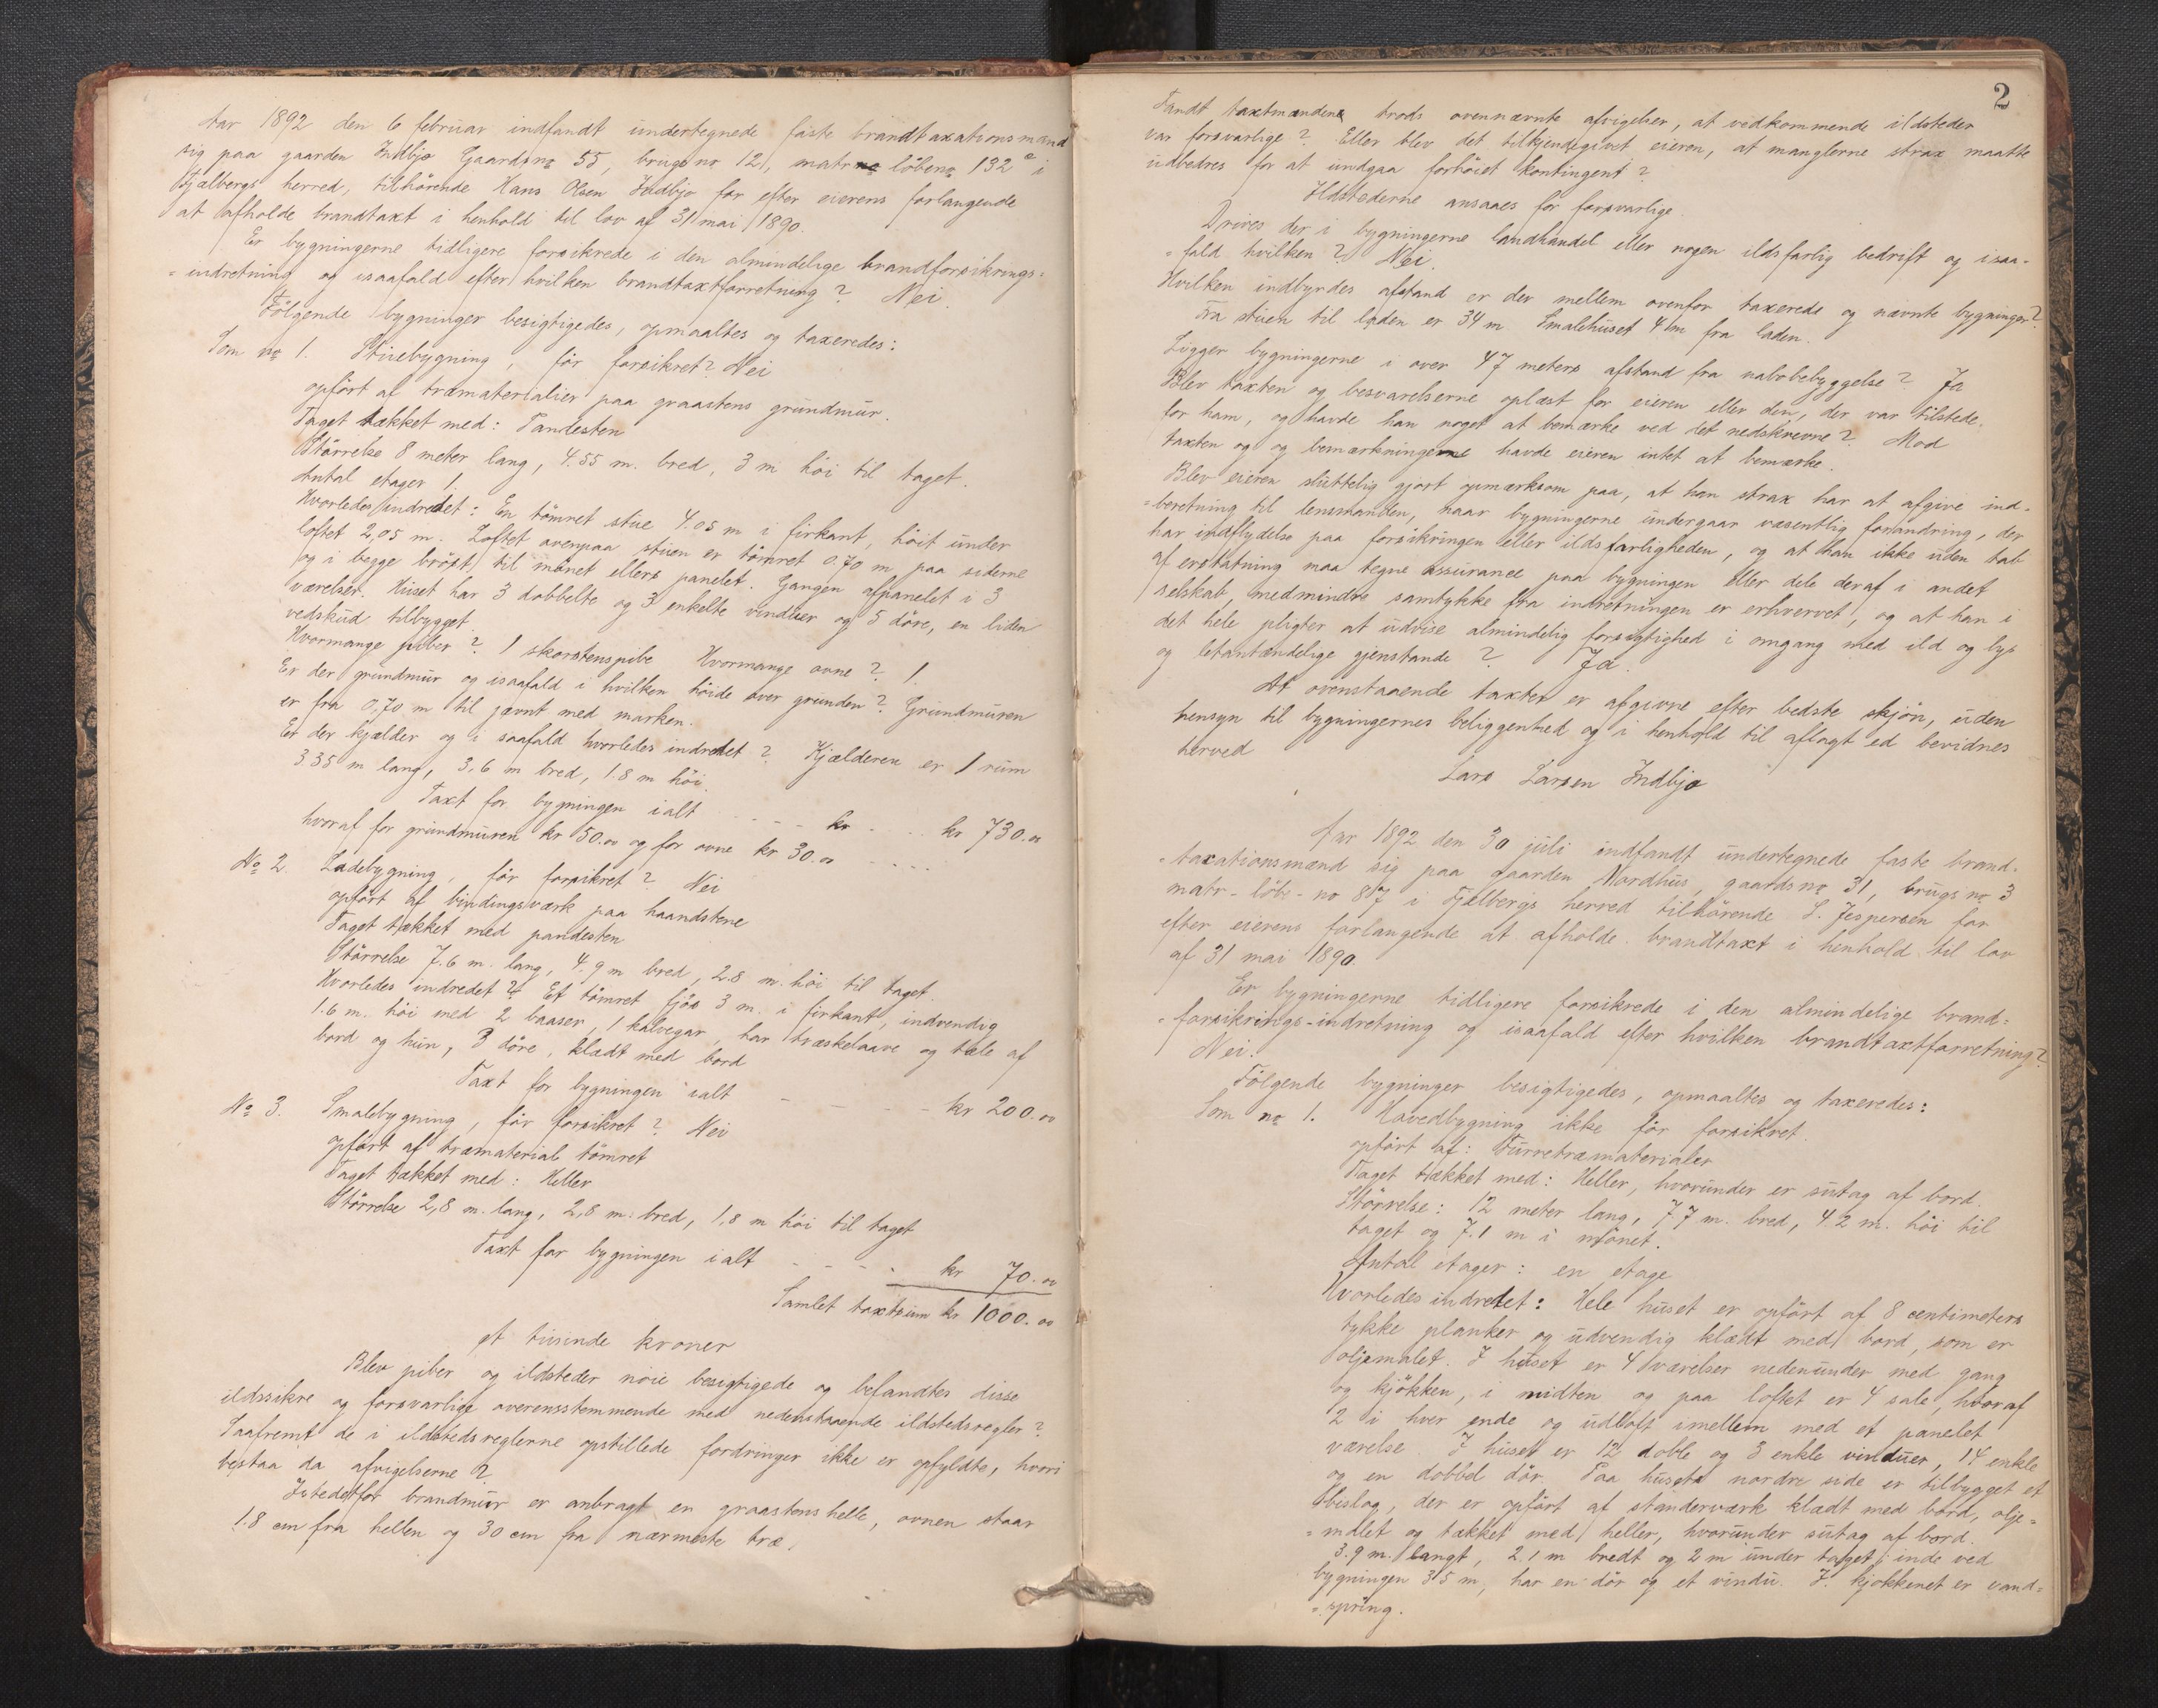 Aar 1892 den 6 februar indfandt undertegnede faste brandtaxationsmænd
sig paa gaarden Indbjo Gaardsno 55, brugsno 12, matr löbeno 132a i
Fjælbergs herred, tilhörende Hans Olsen Indbjo for efter eierens forlangende
at afholde brandtaxt i henhold til lov af 31 mai 1890.
Er bygningerne tidligere forsikrede i den almindelige brandforsikrings=
=indretning og isaafald efter hvilken brandtaxtforretning? Nei.
Fölgende bygninger besigtigedes, opmaaltes og taxeredes:
Som no 1. Stuebygning, för forsikret? Nei
opfört af træmaterialier paa graastens grundmur.
Taget tækket med: Pandesten
Störrelse 8 meter lang, 4.55 m. bred, 3 m höi til taget.
Antal etager 1.
Hvorledes indredet: En tömret stue 4.05 m i firkant, höit under
loftet 2,05 m. Loftet ovenpaa stuen er tömret 0.70 m paa siderne
og i begge bröst til mönet ellers panelet. Gangen afpanelet i 3
værelser. Huset har 3 dobbelte og 3 enkelte vinduer og 5 döre, en liden
vedskud tilbygget.
Hvormange piber? 1 skorstenspibe Hvormange ovne? 1.
Er der grundmur og isaafald i hvilken höide over grunden? Grundmuren
er fra 0,70 m til jævnt med marken.
Er der kjælder og i saafald hvorledes indredet? Kjælderen er 1 rum
3.35 m lang, 3.6 m bred, 1.8 m höi.
Taxt for bygningen ialt - - - kr - - - kr 730.00
hvoraf for grundmuren kr 50.00 og for ovne kr 30.00 - - - -
No 2. Ladebygning, för forsikret? Nei
opfört af bindingsværk paa haandstene
Taget tækket med pandesten
Störrelse 7.6 m. lang, 4.9 m bred, 2.8 m. höi til taget.
Hvorledes indredet? Et tömret fjös 3 m. i firkant, indvendig
1.6 m. höi med 2 baaser, 1 kalvegar, har træskelaave og tæle af
bord og hun, 3 döre, klædt med bord
Taxt for bygningen ialt - - - - - kr 200.00
No 3. Smalebygning, för forsikret? Nei
opfört af træmateriale tömret
Taget tækket med: Heller
Störrelse 2,8 m. lang, 2,8 m. bred, 1,8 m höi til taget
Taxt for bygningen ialt - - - - kr 70.00
Samlet taxtsum kr 1000.00
et tusinde kroner
Blev piber og ildsteder nöie besigtigede og befandtes disse
ildssikre og forsvarlige overensstemmende med nedenstaaende ildstedsregler?
Saafremt de i ildstedsreglerne opstillede fordringer ikke er opfyldte, hvori
bestaa da afvigelserne?
Istedetfor brandmur er anbragt en graastenshelle, ovnen staar
1.8 cm fra hellen og 30 cm fra nærmeste træ.
2
Fandt taxtmændene trods ovennævnte afvigelser, at vedkommende ildsteder
var forsvarlige? Eller blev det tilkjendegivet eieren, at manglerne strax maatte
udbedres for at undgaa forhöiet kontingent?
Ildstederne ansaaes for forsvarlige.
Drives der i bygningerne landhandel eller nogen ildsfarlig bedrift og isaa-
=fald hvilken? Nei.
Hvilken indbyrdes afstand er der mellem ovenfor taxerede og nævnte bygninger?
Fra stuen til laden er 34 m Smalehuset 4 m fra laden.
Ligger bygningerne i over 47 meters afstand fra nabobebyggelse? Ja
Blev taxten og besvarelserne oplæst for eieren eller den, der var tilstede
for ham, og havde han noget at bemærke ved det nedskrevne? Mod
taxten og og bemærkningerne havde eieren intet at bemærke.
Blev eieren sluttelig gjort opmærksom paa, at han strax har at afgive ind-
=beretning til lensmanden, naar bygningerne undergaar væsentlig forandring, der
har indflydelse paa forsikringen eller ildsfarligheden, og at han ikke uden tab
af erstatning maa tegne assurance paa bygningen eller dele deraf i andet
selskab, medmindre samtykke fra indretningen er erhvervet, og at han i
det hele pligter at udvise almindelig forsigtighed i omgang med ild og lys
og letantændelige gjenstande? Ja.
At ovenstaaende taxter er afgivne efter bedste skjön, uden
hensyn til bygningernes beliggenhed og i henhold til aflagt ed bevidnes
herved
Lars Larsen Indbjo
Aar 1892 den 30 juli indfandt undertegnede faste brand-
-taxationsmænd sig paa gaarden Nordhus, gaardsno 31, brugsno 3
matr-löbe-no 87 i Fjelbergs herred tilhörende S. Jespersen for
efter eierens forlangende at afholde brandtaxt i henhold til lov
af 31 mai 1890.
Er bygningerne tidligere forsikrede i den almindelige brand=
=forsikrings-indretning og isaafald efter hvilken brandtaxtforretning?
Nei.
Fölgende bygninger besigtigedes, opmaaltes og taxeredes:
Som no 1. Hovedbygning ikke för forsikret.
opfört af: Furretræmaterialer
Taget tækket med: Heller, hvorunder er sutag af bord.
Störrelse: 12 meter lang, 7.7 m. bred, 4.2 m. höi til
taget og 7.1 m i mönet.
Antal etager: en etage
Hvorledes indredet: Hele huset er opfört af 8 centimeters
tykke planker og udvendig klædt med bord, som er
oljemalet. I huset er 4 værelser nedenunder med gang
og kjökken, i midten og paa loftet er 4 sale, hvoraf
2 i hver ende og udloft imellem med et panelet
værelse. I huset er 12 doble og 3 enkle vinduer, 14 enkle
og en dobbel dör. Paa husets nordre side er tilbygget et
bislag, der er opfört af standerværk klædt med bord, olje=
=malet og tækket med heller, hvorunder sutag af bord.
3.9 m. langt, 2.1 m bredt og 2 m under taget, inde ved
bygningen 3.5 m, har en dör og et vindu. I kjökkenet er vand=
=spring.